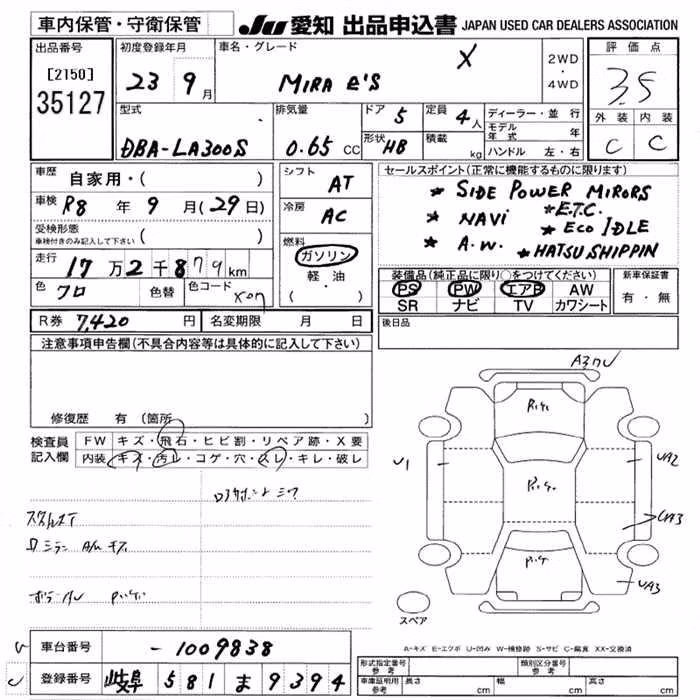 車内保管・守衛保管 JU 愛知 出品申込書 JAPAN USED CAR DEALERS ASSOCIATION
出品番号 初度登録年月 車名・グレード 評価点
[2150] 23 9月 MIRA e'S X 2WD・4WD 3.5
35127
型式 排気量 ドア 5 定員 4人 ディーラー・並行 外装 内装
DBA-LA300S 0.65 CC 形状 HB 積載 kg モデル年式 年 C C
ハンドル 左・右
車歴 自家用・( ) シフト AT セールスポイント(正常に機能するものに限ります)
車検 R8年 9月(29日) 冷房 AC * SIDE POWER MIRORS
* NAVI * E.T.C.
* ECO IDLE
受検形態 車検付きのみ記入して下さい ( ) * A.W. * HATSU SHIPPIN
走行 17万2千879km 燃料 ガソリン 軽油 (・)
装備品(純正品に限り○をつけてください) 新車保証書
色 クロ 色替 色コード X07 PS PW エアB AW 有・無
SR ナビ TV カワシート
R券 7,420円 名変期限 月 日 後日品
注意事項申告欄(不具合内容等は具体的に記入して下さい)
修復歴 有(箇所 )
検査員記入欄 FW キズ・飛石・ヒビ割・リペア跡・X要
内装 キズ・汚レ・コゲ・穴・スレ・キレ・破レ
U1
UA2
UA3
UA3
スペア
A-キズ E-エクボ U-凹み W-補修跡 S-サビ C-腐食 XX-交換済
車台番号 -1009838 形式指定番号 参考 類別区分番号 参考
登録番号 岐阜 581 ま 9394 車庫証明用 参考 長さ cm 幅 cm 高さ cm